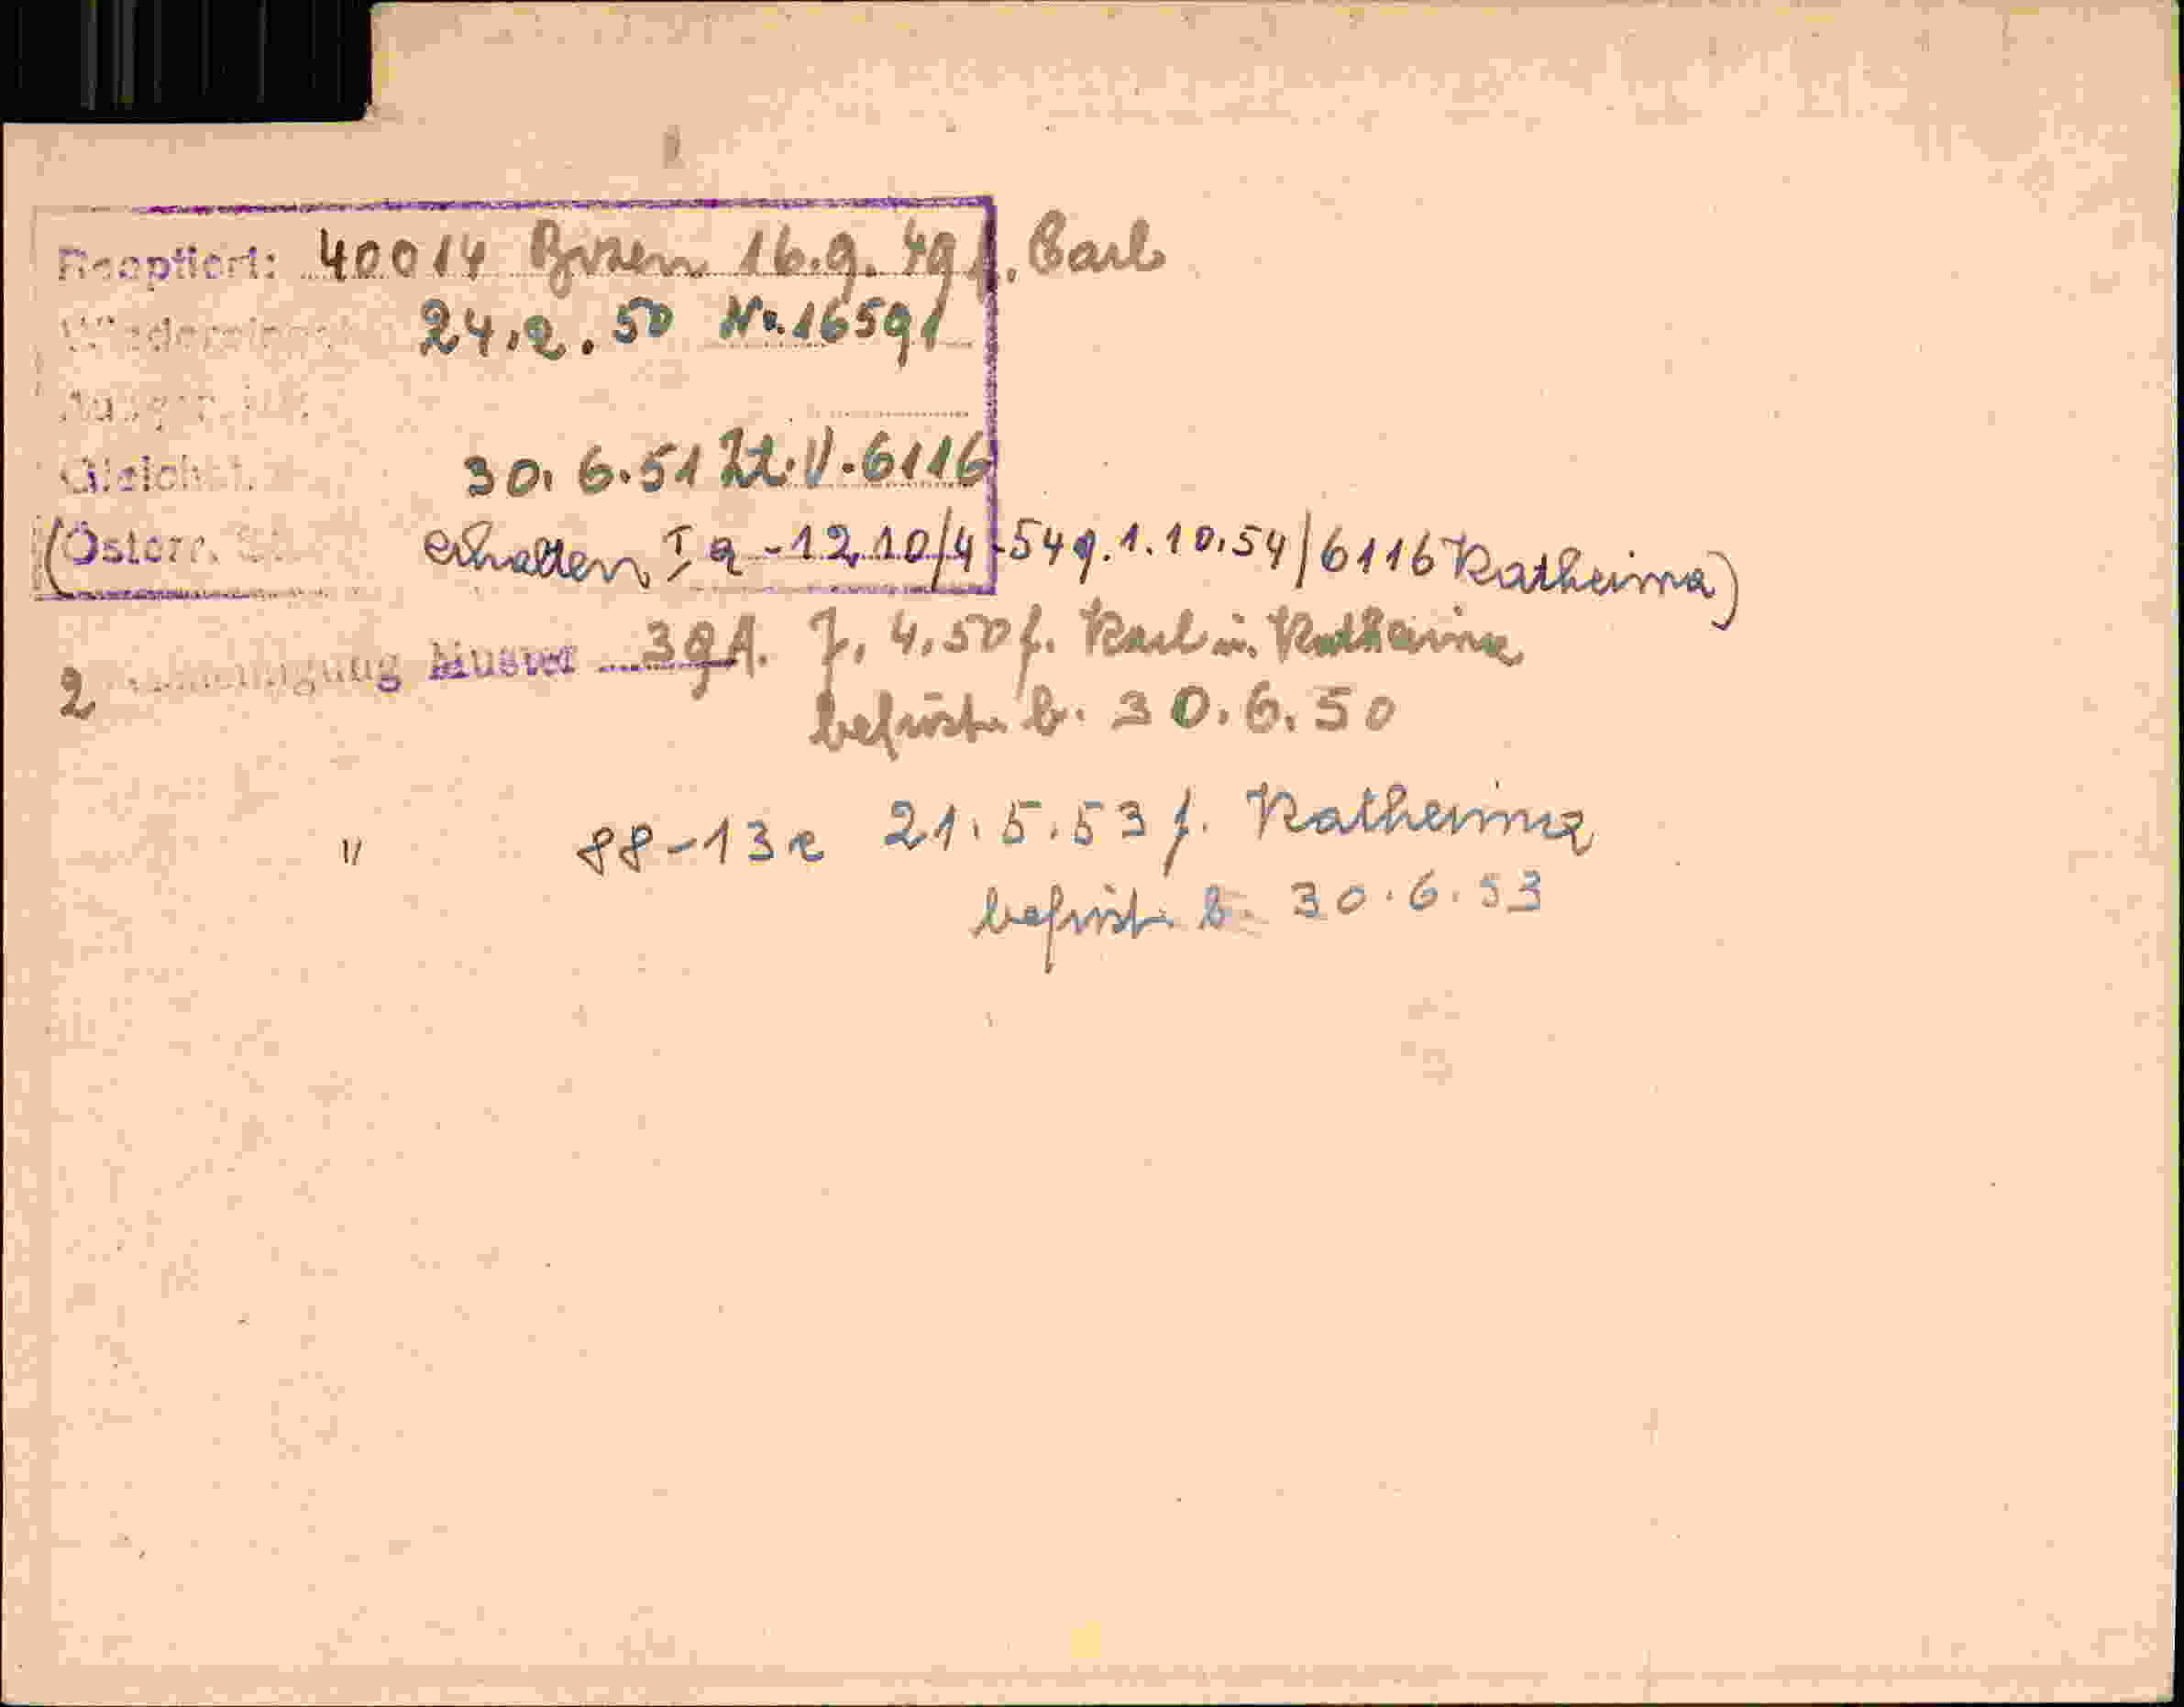 Reoptiert: 40014 Bozen 16.9.49 f. Carl
24.2.50 No.16591
Gleichst. 30.6.51 Zl.V.6116
(Österr. St. erhalten Ia-1210/4-54 g. 1.10.54/6116 Katherina)
2 Muster 39A. 7.4.50 f. Karl u. Katherina
befrist. b. 30.6.50
" 88-13e 21.5.53 f. Katherina
befrist. b. 30.6.53